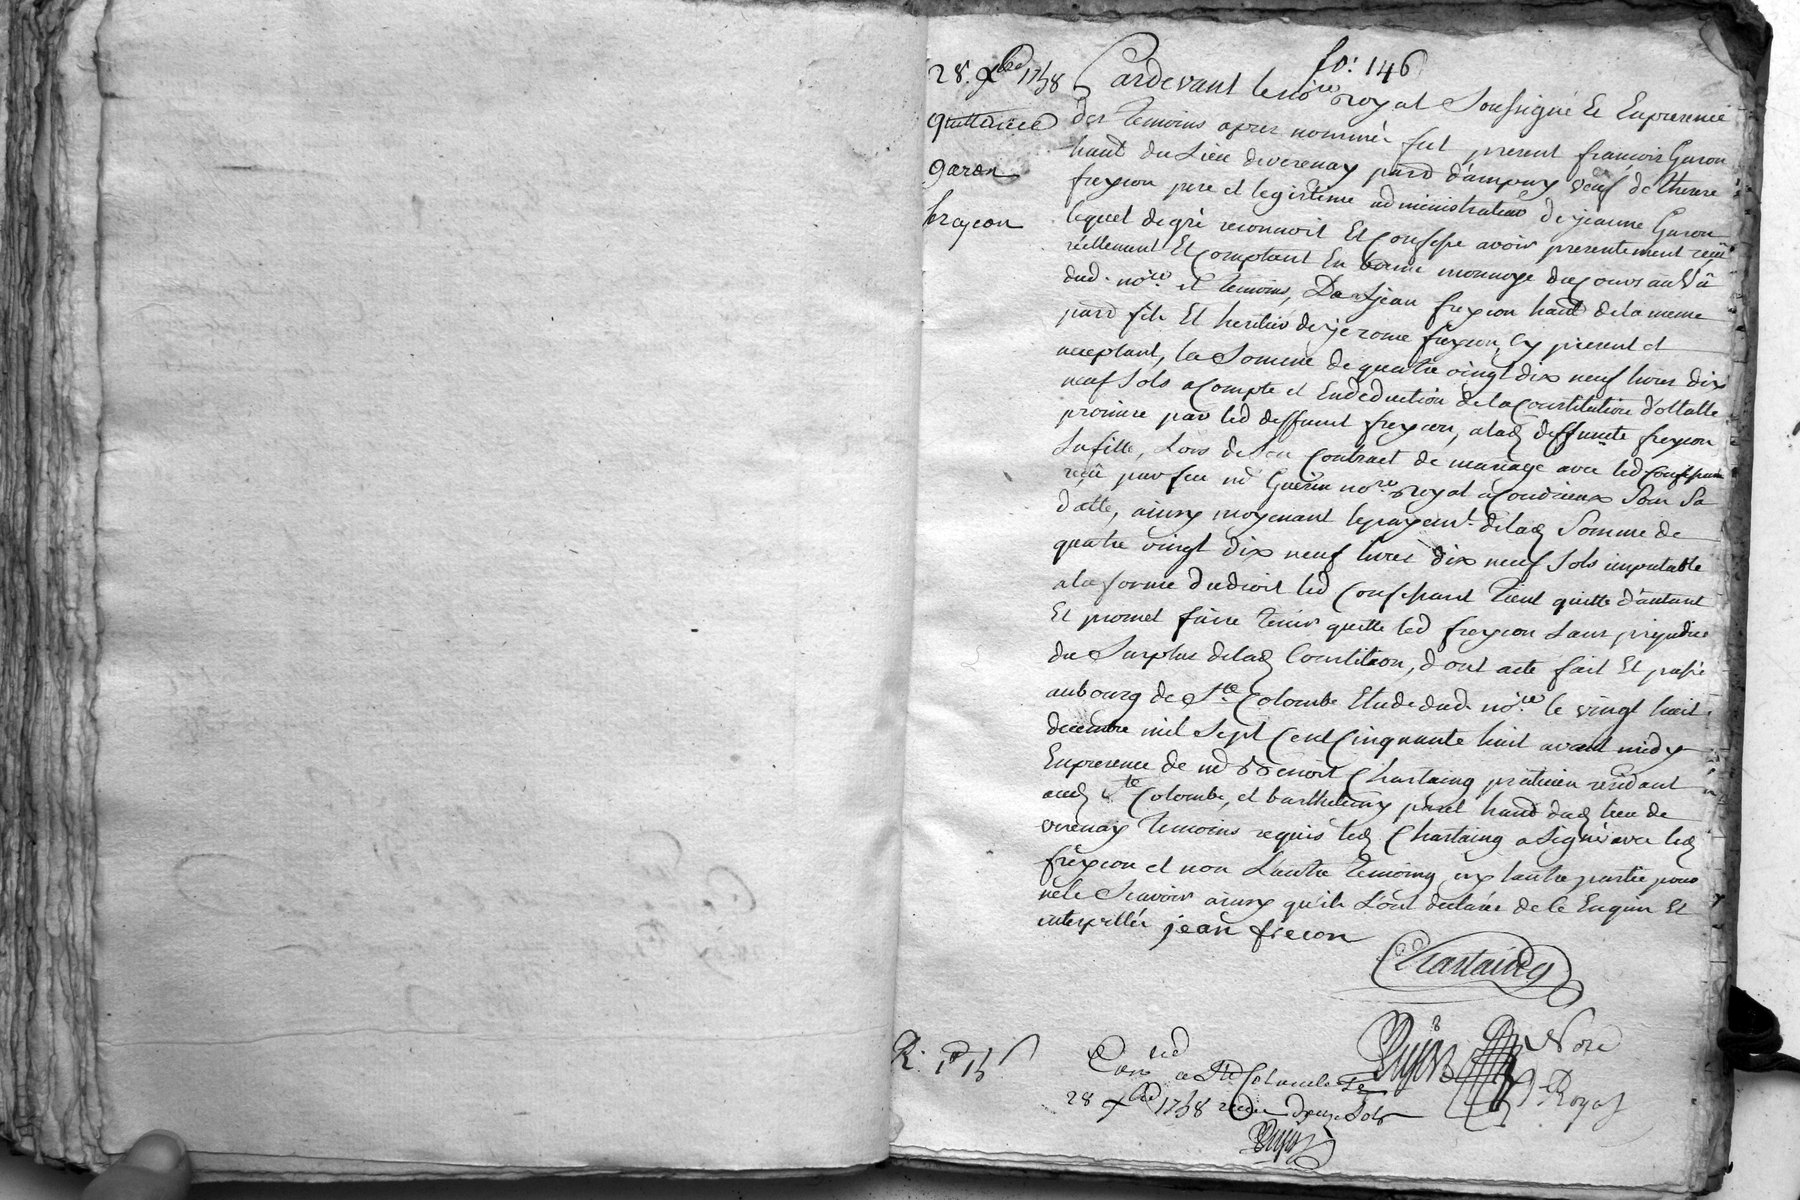 fo: 146
28. xbre 1758
quittance
garon
freyçon
Pardevant le no.re royal Soussigné Et Enpresence
des temoins apres nommés fut present francois Garon
haut du Lieu deverenay parr d'ampuy veuf de therese
freycon pere et legistime administrateur de jeanne Garon
lequel de gré reconnoit Et Confesse avoir presentement reçû
réellement Et Comptant En bonne monnoye du Cours au Vû
dud. no.re et temoins, De Sr jean freycon haut de la meme
parr fils Et heritier de jerome freycon, Cy present et
acceptant, la Somme de quatre vingt dix neuf livres dix
neuf Sols a Compte et Endeduction de la Constitution dottalle
promise par led deffunt freycon, alad deffunte freycon
Sa fille, Lors de Son Contract de mariage avec led Confessant
reçû par feu me Guerin no.re royal a Condrieux Sous Sa
datte, ainsy moyenant le payemt. delad Somme de
quatre vingt dix neuf livres dix neuf Sols imputable
a la forme du droit led Confessant tient quitte d'autant
Et promet faire tenir quitte led freycon Sans prejudice
du Surplus delad Constitution, dont acte fait Et passé
au bourg de Ste. Colombe Etude dud no.re le vingt huit
decembre mil Sept Cent Cinquante huit avant midy
Enpresence de me benoit Chastaing praticien residant
aud Ste Colombe, et barthelemy haut dud lieu de
verenay temoins requis led Chastaing a Signé avec led
freycon et non Lautre temoing ny lautre partie pour
ne le Scavoir ainsy qu'ils Lont declarés de ce Enquis Et
interpellés jean frecon
Chastaing
Nore
Royal
Con.led a Ste Colombe le
28 xbre 1758 recu douze Sols